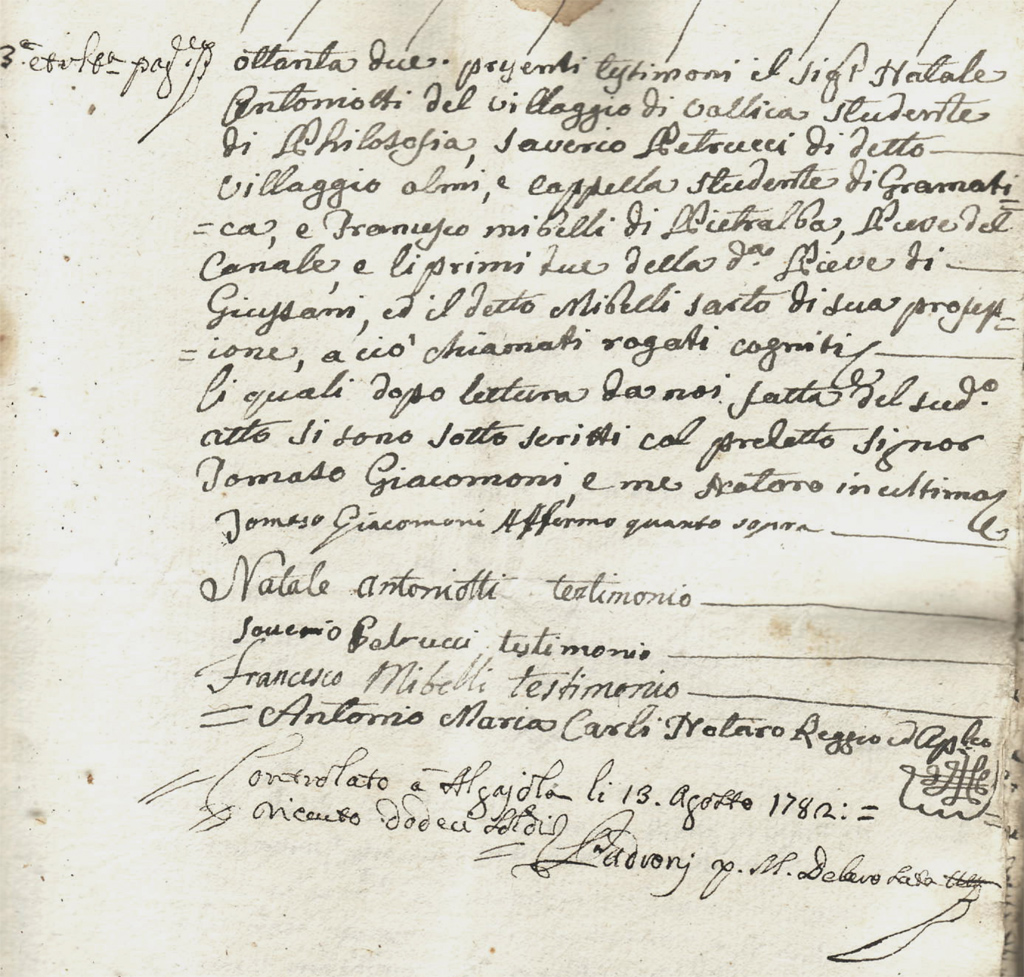 3.ª et ult.ª pag.
ottanta due. presenti testimoni il sig.r Natale
Antoniotti del villaggio di vallica studente
di Philosofia, saverio Petrucci di detto
villaggio olmi, e cappella studente di Gramati
=ca, e Francesco mibelli di Pietralba, Pieve del
Canale, e li primi due della d.ª Pieve di
Giussani, ed il detto Mibelli sarto di sua profess=
=ione, a ciò chiamati rogati cogniti
li quali dopo lettura da noi fatta del sud.º
atto si sono sotto scritti col predetto signor
Tomaso Giacomoni, e me Notaro in ultimo
Tomaso Giacomoni Affermo quanto sopra
Natale Antoniotti testimonio
saverio Petrucci testimonio
Francesco Mibelli testimonio
= Antonio Maria Carli Notaro Reggio ed Ap.lico
Controlato à Algajola li 13. Agosto 1782: =
ricevuto dodeci soldi
= Padronj p. M.